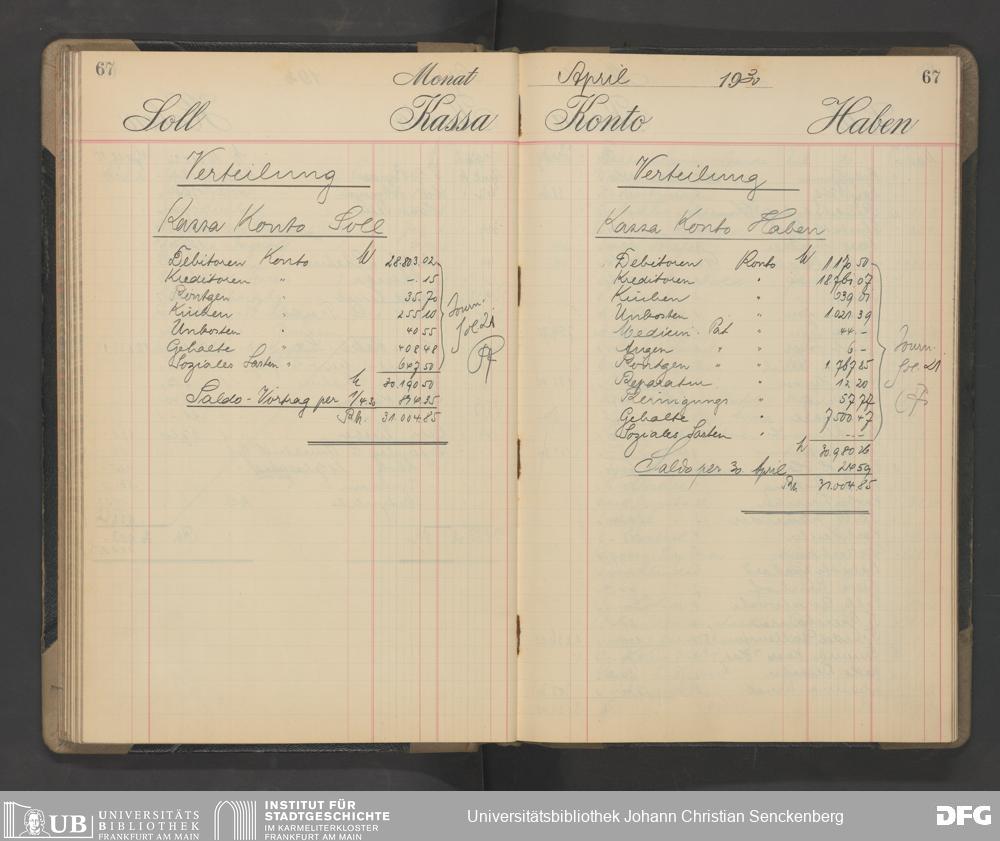 67
Monat
Soll Kassa
Verteilung
Kassa Konto Soll
Debitoren Konto M 28.803.02
Kreditoren " –.15
Röntgen " 35.70
Küchen " 255 10
Unkosten " 40 55
Gehalte " 408 48
Soziales Lasten " 647 50
M 30.190 50
Saldo-Vortrag per 1/4 30 814.35
Rm. 31.004.85
Journ.
fol 21
April 1930 67
Konto Haben
Verteilung
Kassa Konto Haben
Debitoren Konto M 1 170 50
Kreditoren " 18 761 07
Küchen " 639 01
Unkosten " 1.021.39
Medicin. Pat " 44 –
Augen " " 6 –
Röntgen " " 1.767 85
Reparatur " 12 20
Reinigungs " 57 77
Gehalte " 7 500 47
Soziales Lasten " – –
M 30 980 26
Saldo per 30. April 24 59
Rm. 31.004.85
Journ.
fol. 21
UB UNIVERSITÄTS
BIBLIOTHEK
FRANKFURT AM MAIN
INSTITUT FÜR
STADTGESCHICHTE
IM KARMELITERKLOSTER
FRANKFURT AM MAIN
Universitätsbibliothek Johann Christian Senckenberg
DFG